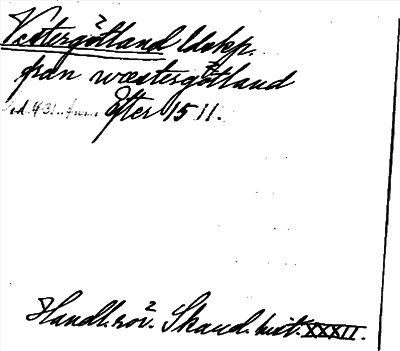 Västergötland ldskp.
från wæstergötland
Efter 1511.
Handl. rör. Skand. hist. XXXII.